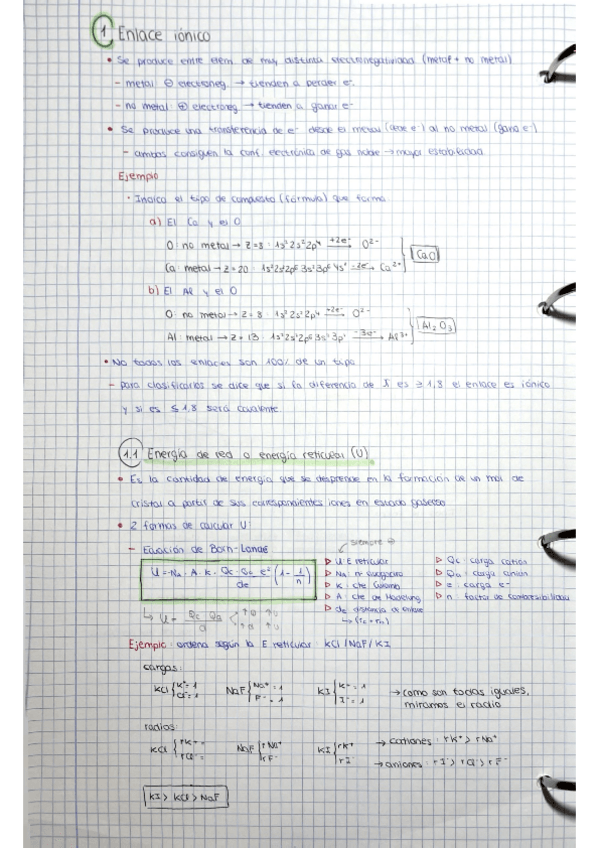 1 Enlace iónico
• Se produce entre elem de muy distinta electronegatividad (metal + no metal)
- metal ⊖ electroneg → tienden a perder e⁻
- no metal ⊕ electroneg → tienden a ganar e⁻
• Se produce una transferencia de e⁻ desde el metal (cede e⁻) al no metal (gana e⁻)
- ambos consiguen la conf. electrónica de gas noble → mayor estabilidad
Ejemplo
· Indica el tipo de compuesto (fórmula) que forma
a) El Ca y el O
O no metal → Z=8 : 1s² 2s² 2p⁴ +2e⁻→ O²⁻
Ca metal → Z=20 : 1s² 2s² 2p⁶ 3s² 3p⁶ 4s² -2e⁻→ Ca²⁺ } CaO
b) El Al y el O
O no metal → Z=8 : 1s² 2s² 2p⁴ +2e⁻→ O²⁻
Al metal → Z=13 : 1s² 2s² 2p⁶ 3s² 3p¹ -3e⁻→ Al³⁺ } Al₂O₃
• No todos los enlaces son 100% de un tipo
- para clasificarlos se dice que si la diferencia de X es ≥ 1,8 el enlace es iónico
y si es ≤ 1,8 será covalente
1.1 Energía de red o energía reticular (U)
• Es la cantidad de energía que se desprende en la formación de un mol de
cristal a partir de sus correspondientes iones en estado gaseoso
• 2 formas de calcular U:
siempre ⊖
- Ecuación de Born-Landé
U = Na · A · K · Qc · Qa · e² / de (1 - 1/n)
▷ U E reticular
▷ Na nº avogadro
▷ K cte
▷ A cte de Madelung
▷ de distancia de enlace
↳ (rc + ra)
▷ Qc : carga catión
▷ Qa : carga anión
▷ e : carga e⁻
▷ n : factor de compresibilidad
↳ U = Qc Qa / d ↑Q ↑U
Ejemplo : ordena según la E reticular : KCl / NaF / KI
cargas:
KCl { K⁺ = 1 Cl⁻ = 1 NaF { Na⁺ = 1 F⁻ = 1 KI { K⁺ = 1 I⁻ = 1 → como son todas iguales,
miramos el radio
radios:
KCl { rK⁺ = rCl⁻ = NaF { rNa⁺ rF⁻ KI { rK⁺ rI⁻ → cationes : rK⁺ > rNa⁺
→ aniones : rI⁻ > rCl⁻ > rF⁻
KI > KCl > NaF